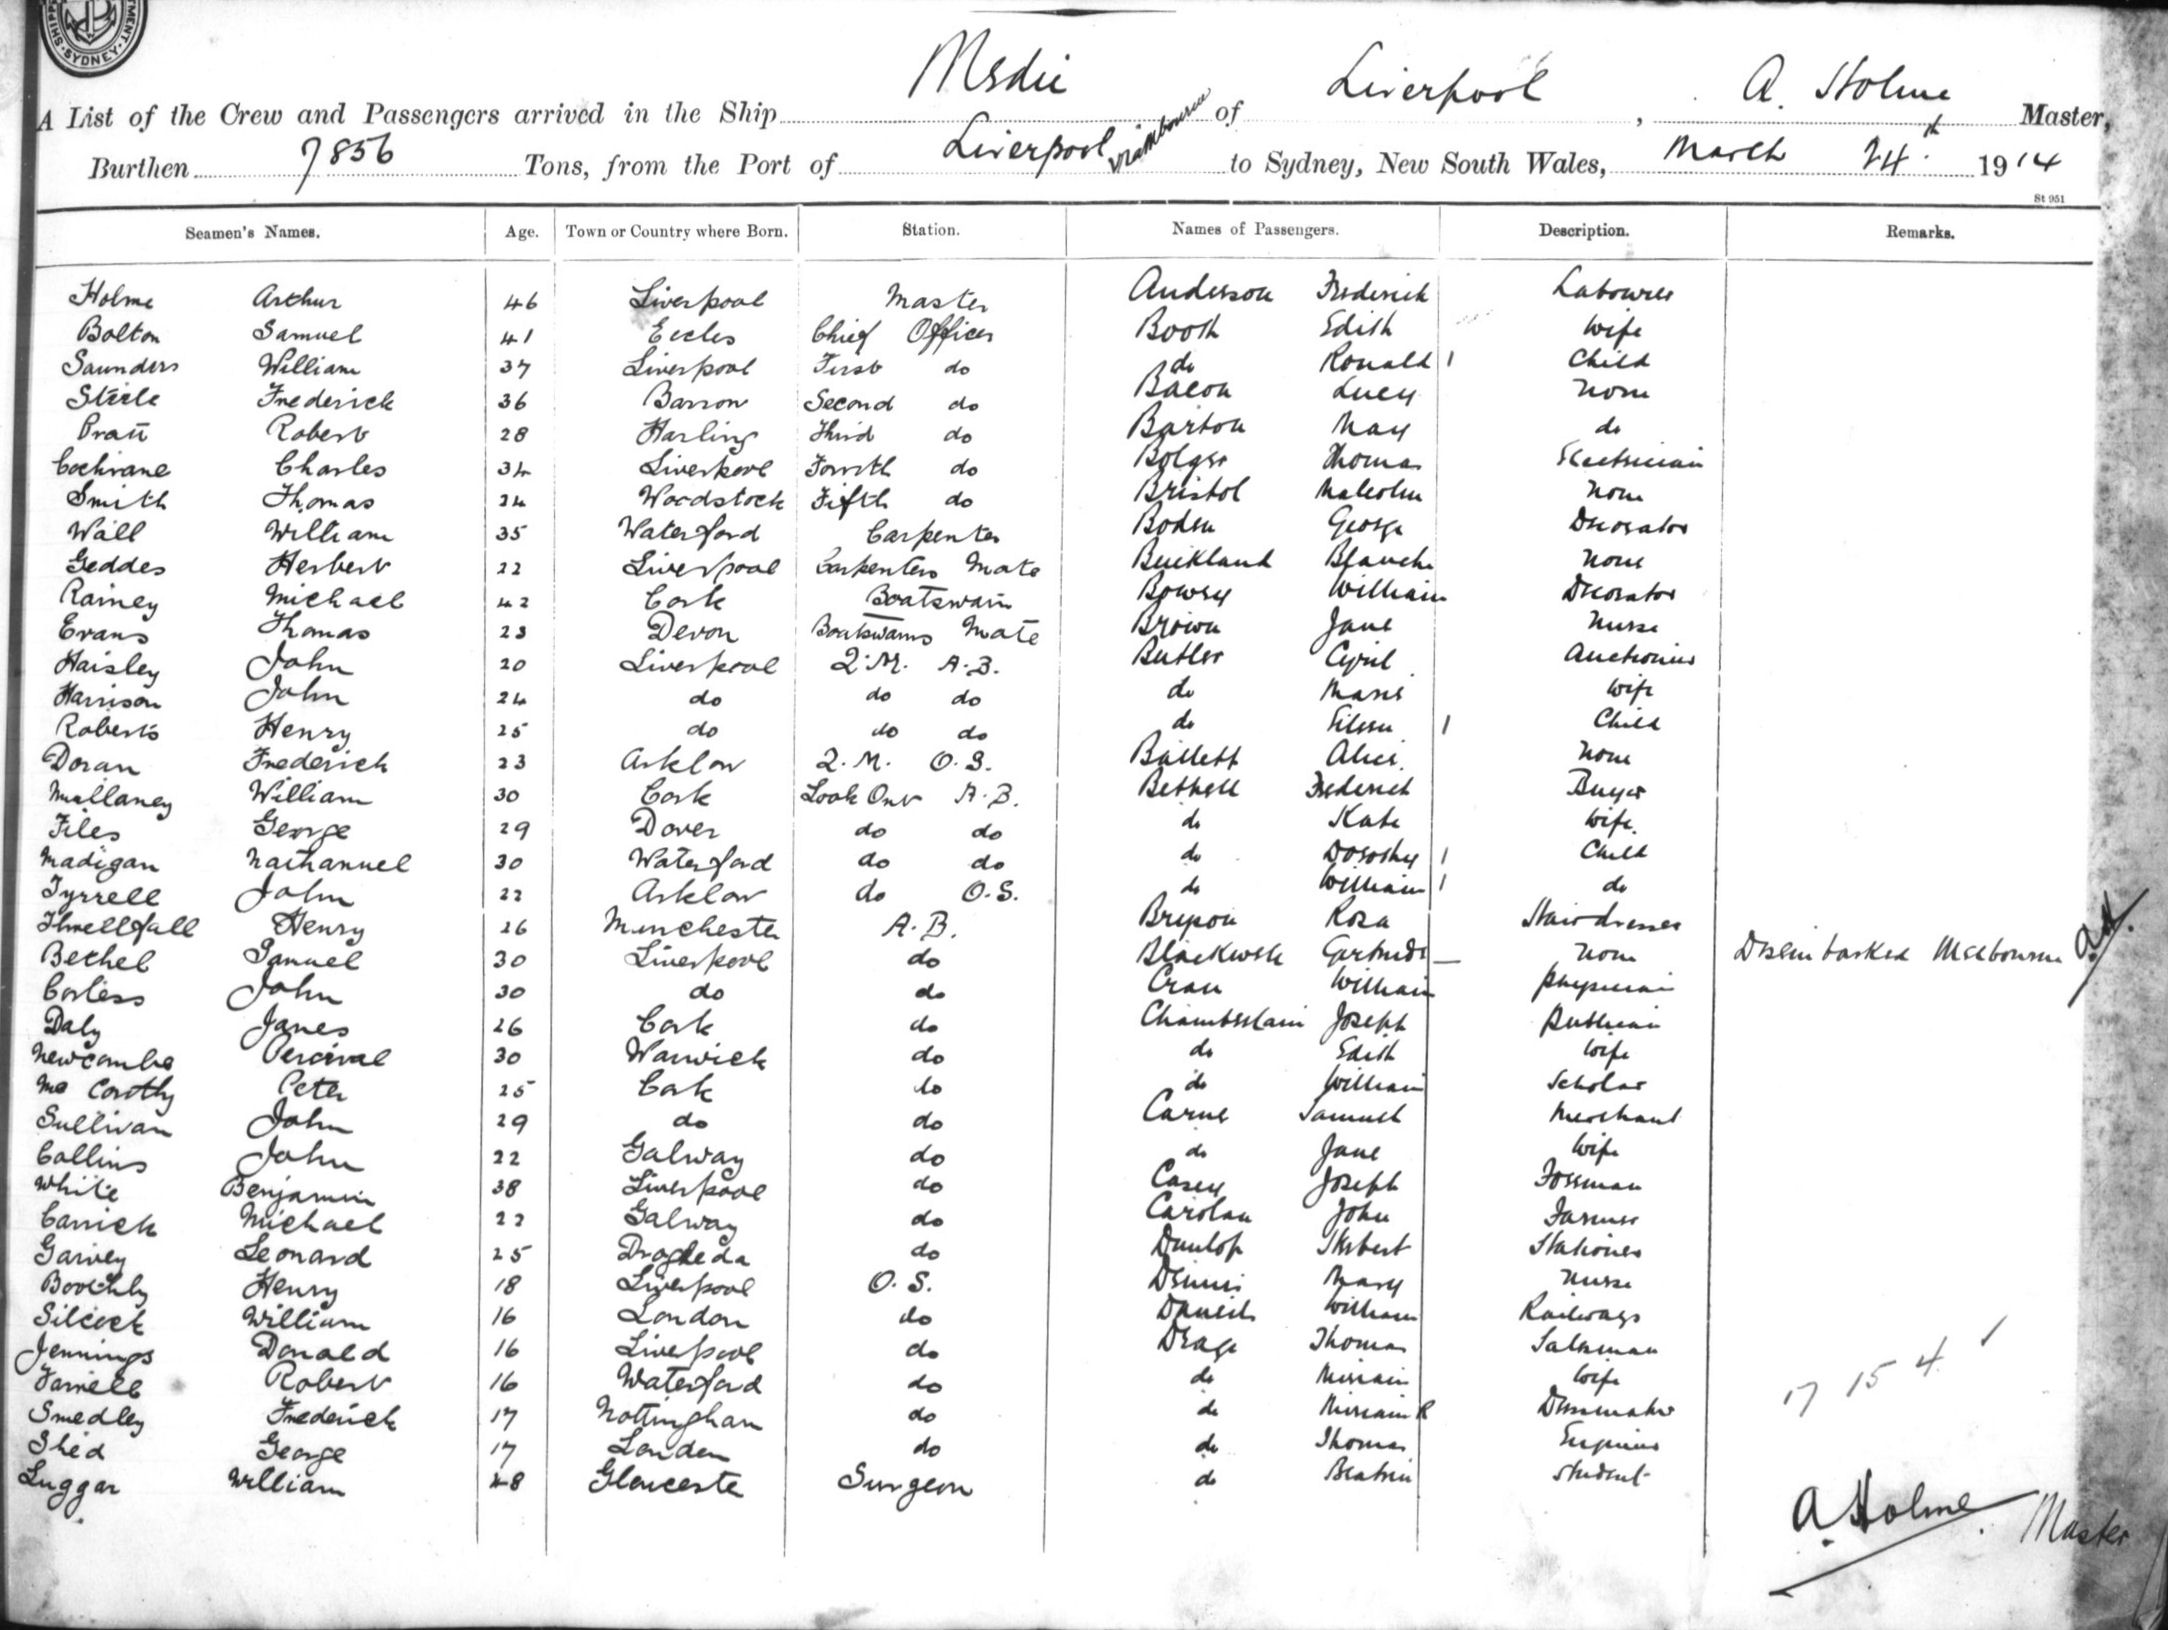 SHIPP
TMENT
SYDNEY
Medic Liverpool A. Holme
A List of the Crew and Passengers arrived in the Ship of , Master,
7856 Liverpool via Melbourne March 24th 14
Burthen Tons, from the Port of to Sydney, New South Wales, 19
St 951
Seamen's Names. Age. Town or Country where Born. Station. Names of Passengers. Description. Remarks.
Holme Arthur 46 Liverpool Master Anderson Frederick Labourer
Bolton Samuel 41 Eccles Chief Officer Booth Edith Wife
Saunders William 37 Liverpool First do do Ronald 1 Child
Steele Frederick 36 Barrow Second do Bacon Lucy None
Pratt Robert 28 Harling Third do Barton May do
Cochrane Charles 34 Liverpool Fourth do Bolger Thomas Electrician
Smith Thomas 24 Woodstock Fifth do Bristol Malcolm None
Wall William 35 Waterford Carpenter Boden George Decorator
Geddes Herbert 22 Liverpool Carpenters Mate Buckland Blanche None
Rainey Michael 42 Cork Boatswain Bowey William Decorator
Evans Thomas 23 Devon Boatswains Mate Brown Jane Nurse
Haisley John 20 Liverpool Q.M. A.B. Butler Cyril Auctioneer
Harrison John 24 do do do do Marie Wife
Roberts Henry 25 do do do do Eileen 1 Child
Doran Frederick 23 Arklow Q.M. O.S. Ballett Alice None
Mullaney William 30 Cork Look Out A.B. Bethell Frederick Buyer
Files George 29 Dover do do do Kate Wife
Madigan Nathanuel 30 Waterford do do do Dorothy 1 Child
Tyrrell John 22 Arklow do O.S. do William 1 do
Threlfall Henry 26 Manchester A.B. Rosa Hairdresser
Bethel Samuel 30 Liverpool do Blackwell Gertrude — None Disembarked Melbourne A.H.
Corless John 30 do do Cran William Physician
Daly James 26 Cork do Chamberlain Joseph Publican
Newcombe Percival 30 Warwick do do Edith Wife
Mc Carthy Peter 25 Cork do do William Scholar
Sullivan John 29 do do Carne Samuel Merchant
Collins John 22 Galway do do Jane Wife
White Benjamin 38 Liverpool do Casey Joseph Foreman
Carrick Michael 22 Galway do Carolan John Farmer
Garvey Leonard 25 Drogheda do Dunlop Herbert Stationer
Boothby Henry 18 Liverpool O.S. Dennis Mary Nurse
Silcock William 16 London do Daniels William Railways
Jennings Donald 16 Liverpool do Drage Thomas Salesman
Farrell Robert 16 Waterford do do Miriam Wife
Smedley Frederick 17 Nottingham do do Miriam R Dressmaker
Shed George 17 London do do Thomas Engineer
Luggar William 48 Gloucester Surgeon do Beatrice Student
17 15 4 1
A Holme Master